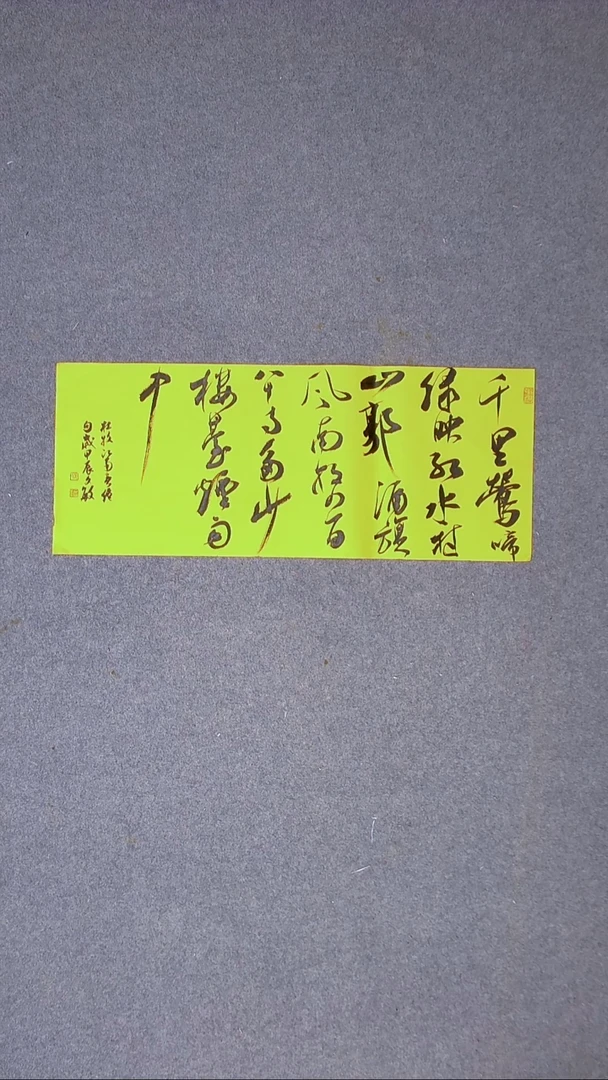 千里鶯啼
绿映红水村
山郭酒旗
风南朝四百
八十寺多少
樓臺煙雨
中
杜牧江南春
歲甲辰